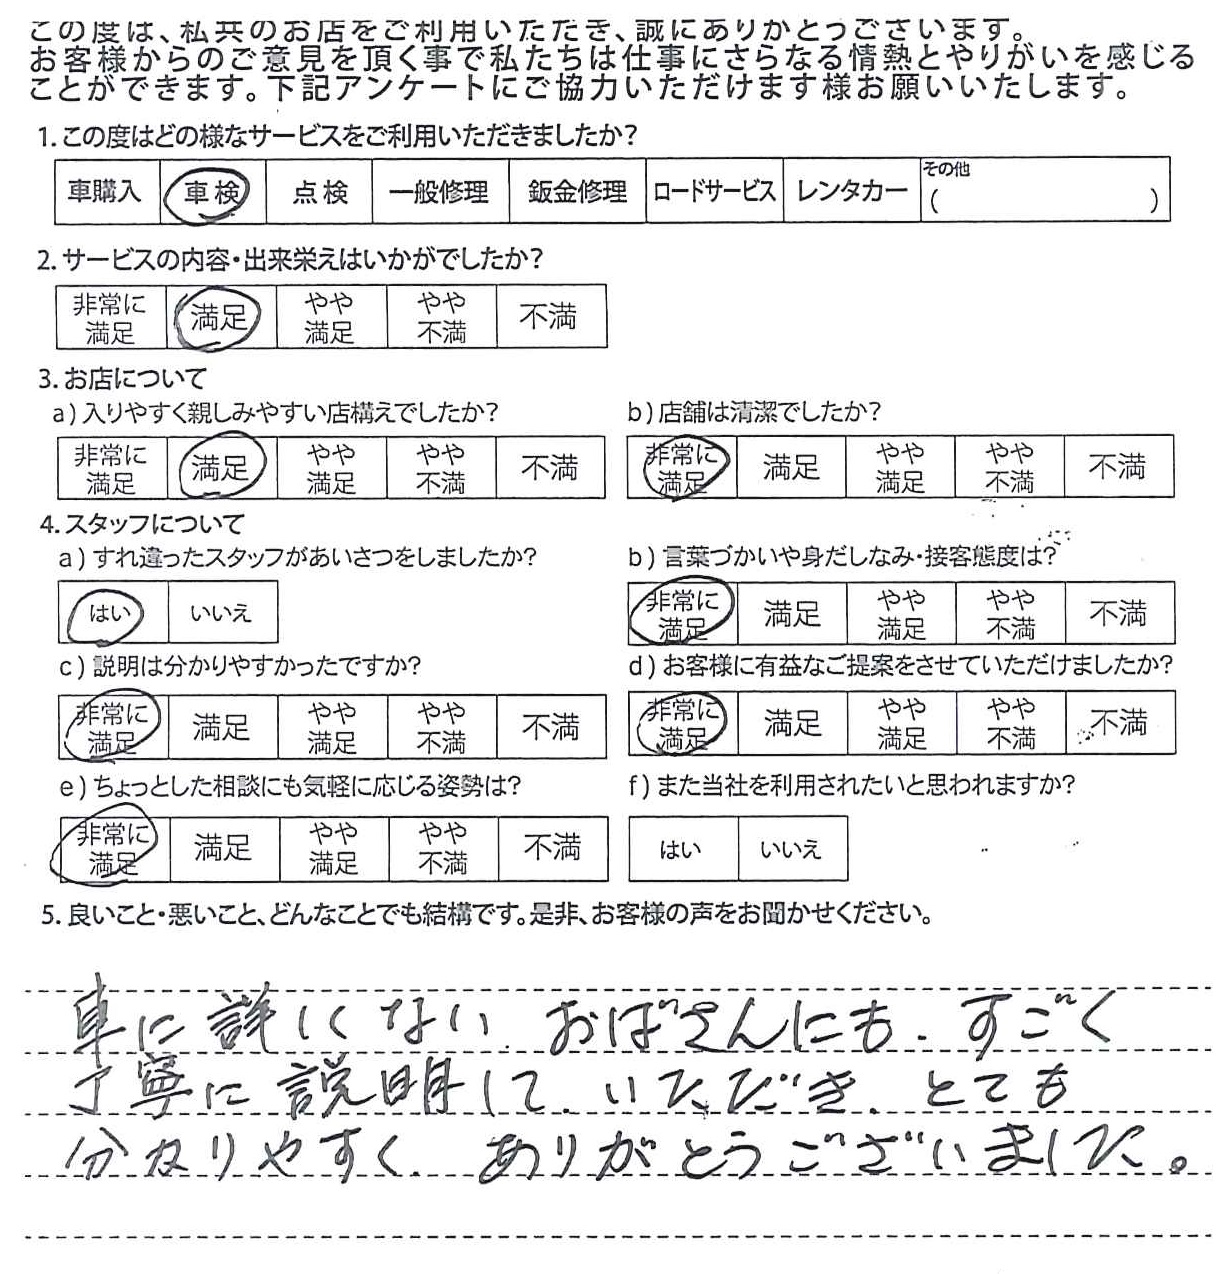 この度は、私共のお店をご利用いただき、誠にありがとうございます。
お客様からのご意見を頂く事で私たちは仕事にさらなる情熱とやりがいを感じる
ことができます。下記アンケートにご協力いただけます様お願いいたします。
1. この度はどの様なサービスをご利用いただきましたか?
車購入 車検 点検 一般修理 鈑金修理 ロードサービス レンタカー その他 ( )
2. サービスの内容・出来栄えはいかがでしたか?
非常に満足 満足 やや満足 やや不満 不満
3. お店について
a) 入りやすく親しみやすい店構えでしたか?
非常に満足 満足 やや満足 やや不満 不満
b) 店舗は清潔でしたか?
非常に満足 満足 やや満足 やや不満 不満
4. スタッフについて
a) すれ違ったスタッフがあいさつをしましたか?
はい いいえ
b) 言葉づかいや身だしなみ・接客態度は?
非常に満足 満足 やや満足 やや不満 不満
c) 説明は分かりやすかったですか?
非常に満足 満足 やや満足 やや不満 不満
d) お客様に有益なご提案をさせていただけましたか?
非常に満足 満足 やや満足 やや不満 不満
e) ちょっとした相談にも気軽に応じる姿勢は?
非常に満足 満足 やや満足 やや不満 不満
f) また当社を利用されたいと思われますか?
はい いいえ
5. 良いこと・悪いこと、どんなことでも結構です。是非、お客様の声をお聞かせください。
車に詳しくない、おばさんにも、すごく
丁寧に説明して、いただき、とても
分かりやすく、ありがとうございました。